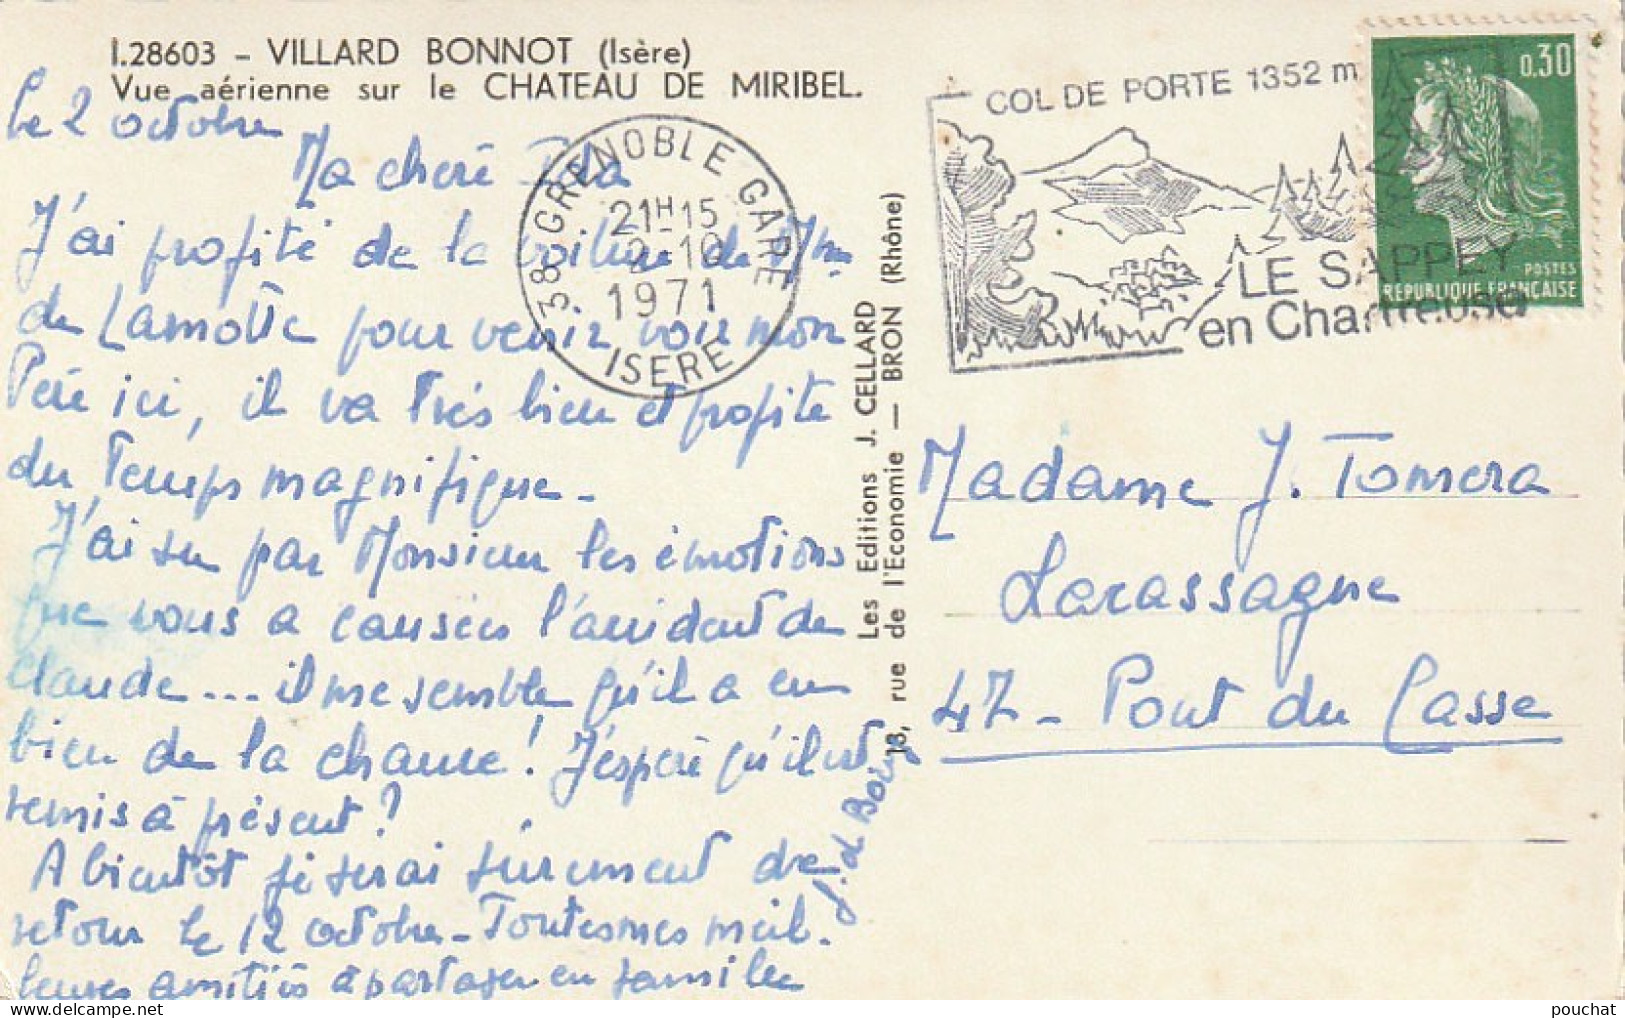 I.28603 - VILLARD BONNOT (Isère)
Vue aérienne sur le CHATEAU DE MIRIBEL.
Le 2 octobre
Ma chère
J'ai profité de la voiture de Mme
de Lamotte pour venir voir mon
Père ici, il va très bien et profite
du temps magnifique -
J'ai su par Monsieur les émotions
que vous a causées l'accident de
Claude... il me semble qu'il a eu
bien de la chance ! J'espère qu'il est
remis à présent ?
A bientôt je serai sûrement de
retour le 12 octobre - Toutes mes meil-
leures amitiés à partager en famille
38 GRENOBLE GARE
21H15
2-10
1971
ISERE
Les Editions J. CELLARD
18, rue de l'Economie — BRON (Rhône)
COL DE PORTE 1352 m
LE SAPPEY
en Chartreuse
0,30
POSTES
REPUBLIQUE FRANÇAISE
Madame J. Tomera
Larassagne
47 - Pont du Casse
pouchat